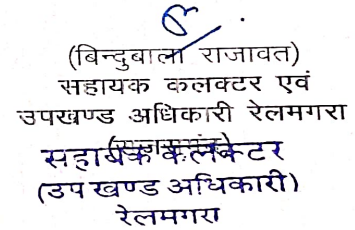 (बिन्दुबाला राजावत)
सहायक कलक्टर एवं
उपखण्ड अधिकारी रेलमगरा
सहायक कलक्टर
(उपखण्ड अधिकारी)
रेलमगरा